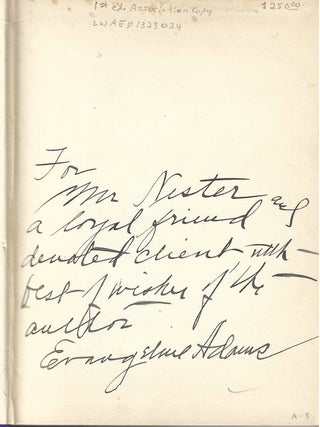 1st Ed. Association Copy $250.00
LWAEP1323024
For
Mr Nister and
a loyal friend
devoted client with
best of wishes of the
author
Evangeline Adams
A-8